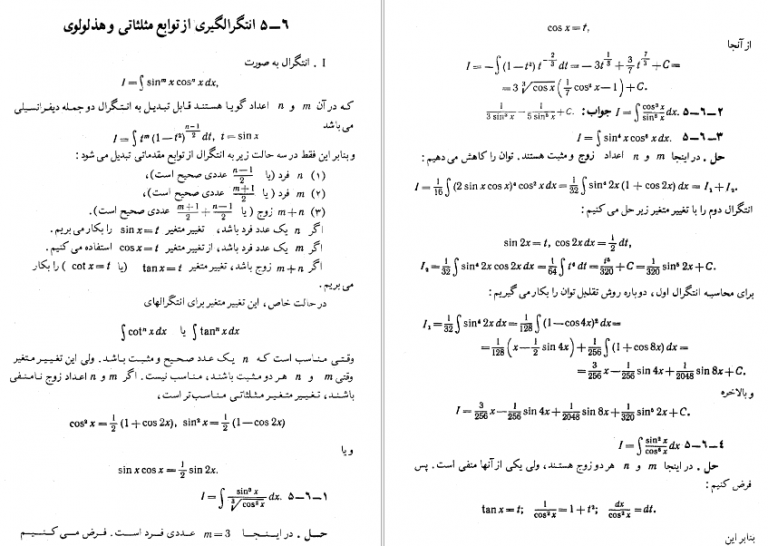 ۵ــ۶ انتگرالگیری از توابع مثلثاتی و هذلولوی
I . انتگرال به صورت
I = ∫ sinᵐ x cosⁿ x dx,
که در آن m و n اعداد گویا هستند قابل تبدیل به انتگرال دو جمله دیفرانسیلی
می‌باشد
I = ∫ tᵐ (1 − t²)^((n−1)/2) dt, t = sin x
و بنابر این فقط در سه حالت زیر به انتگرال از توابع مقدماتی تبدیل می شود :
(۱) n فرد (یا (n−1)/2 عددی صحیح است)،
(۲) m فرد (یا (m+1)/2 عددی صحیح است)،
(۳) m+n زوج ( یا (m+1)/2 + (n−1)/2 عددی صحیح است).
اگر n یک عدد فرد باشد، تغییر متغیر sin x = t را بکار می بریم.
اگر m یک عدد فرد باشد، از تغییر متغیر cos x = t استفاده می کنیم.
اگر m+n زوج باشد، تغییر متغیر tan x = t (یا cot x = t ) را بکار
می بریم.
در حالت خاص، این تغییر متغیر برای انتگرالهای
∫ cotⁿ x dx یا ∫ tanⁿ x dx
وقتی مناسب است که n یک عدد صحیح و مثبت باشد. ولی این تغییر متغیر
وقتی m و n هر دو مثبت باشند، مناسب نیست. اگر m و n اعداد زوج نامنفی
باشند، تغییر متغیر مثلثاتی مناسب‌تر است،
cos² x = 1/2 (1 + cos 2x), sin² x = 1/2 (1 − cos 2x)
و یا
sin x cos x = 1/2 sin 2x.
۵ــ۶ــ۱ I = ∫ sin³ x / ∛(cos² x) dx.
حل . در اینجا m = 3 عددی فرد است. فرض می کنیم
cos x = t,
از آنجا
I = −∫ (1 − t²) t^(−2/3) dt = −3t^(1/3) + 3/7 t^(7/3) + C =
= 3 ∛(cos x) (1/7 cos² x − 1) + C.
۵ــ۶ــ۲ I = ∫ cos³ x / sin⁶ x dx. جواب: 1/(3 sin³ x) − 1/(5 sin⁵ x) + C.
۵ــ۶ــ۳ I = ∫ sin⁴ x cos⁶ x dx.
حل . در اینجا m و n اعداد زوج و مثبت هستند. توان را کاهش می دهیم :
I = 1/16 ∫ (2 sin x cos x)⁴ cos² x dx = 1/32 ∫ sin⁴ 2x (1 + cos 2x) dx = I₁ + I₂.
انتگرال دوم را با تغییر متغیر زیر حل می کنیم :
sin 2x = t, cos 2x dx = 1/2 dt,
I₂ = 1/32 ∫ sin⁴ 2x cos 2x dx = 1/64 ∫ t⁴ dt = t⁵/320 + C = 1/320 sin⁵ 2x + C.
برای محاسبه انتگرال اول، دوباره روش تقلیل توان را بکار می گیریم :
I₁ = 1/32 ∫ sin⁴ 2x dx = 1/128 ∫ (1 − cos 4x)² dx =
= 1/128 (x − 1/2 sin 4x) + 1/256 ∫ (1 + cos 8x) dx =
= 3/256 x − 1/256 sin 4x + 1/2048 sin 8x + C.
و بالاخره
I = 3/256 x − 1/256 sin 4x + 1/2048 sin 8x + 1/320 sin⁵ 2x + C.
۵ــ۶ــ۴ I = ∫ sin² x / cos⁶ x dx
حل . در اینجا m و n هر دو زوج هستند، ولی یکی از آنها منفی است. پس
فرض کنیم :
tan x = t; 1/cos² x = 1 + t²; dx/cos² x = dt.
بنابر این